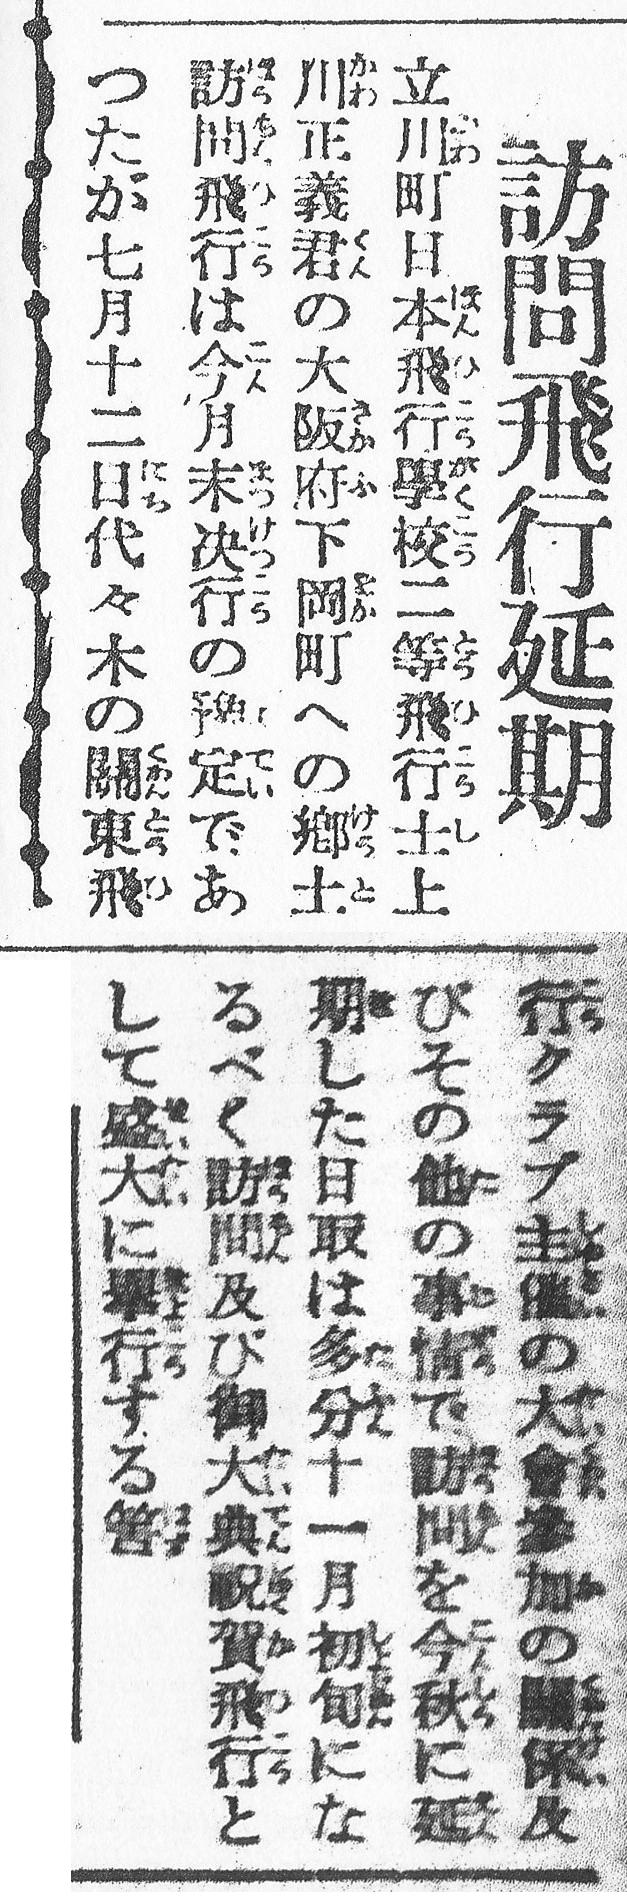 訪問飛行延期
立川町日本飛行學校二等飛行士上
川正義君の大阪府下岡町への鄕土
訪問飛行は今月末決行の豫定であ
つたが七月十二日代々木の關東飛
行クラブ主催の大會參加の關係及
びその他の事情で訪問を今秋に延
期した日取は多分十一月初旬にな
るべく訪問及び御大典祝賀飛行と
して盛大に擧行する筈